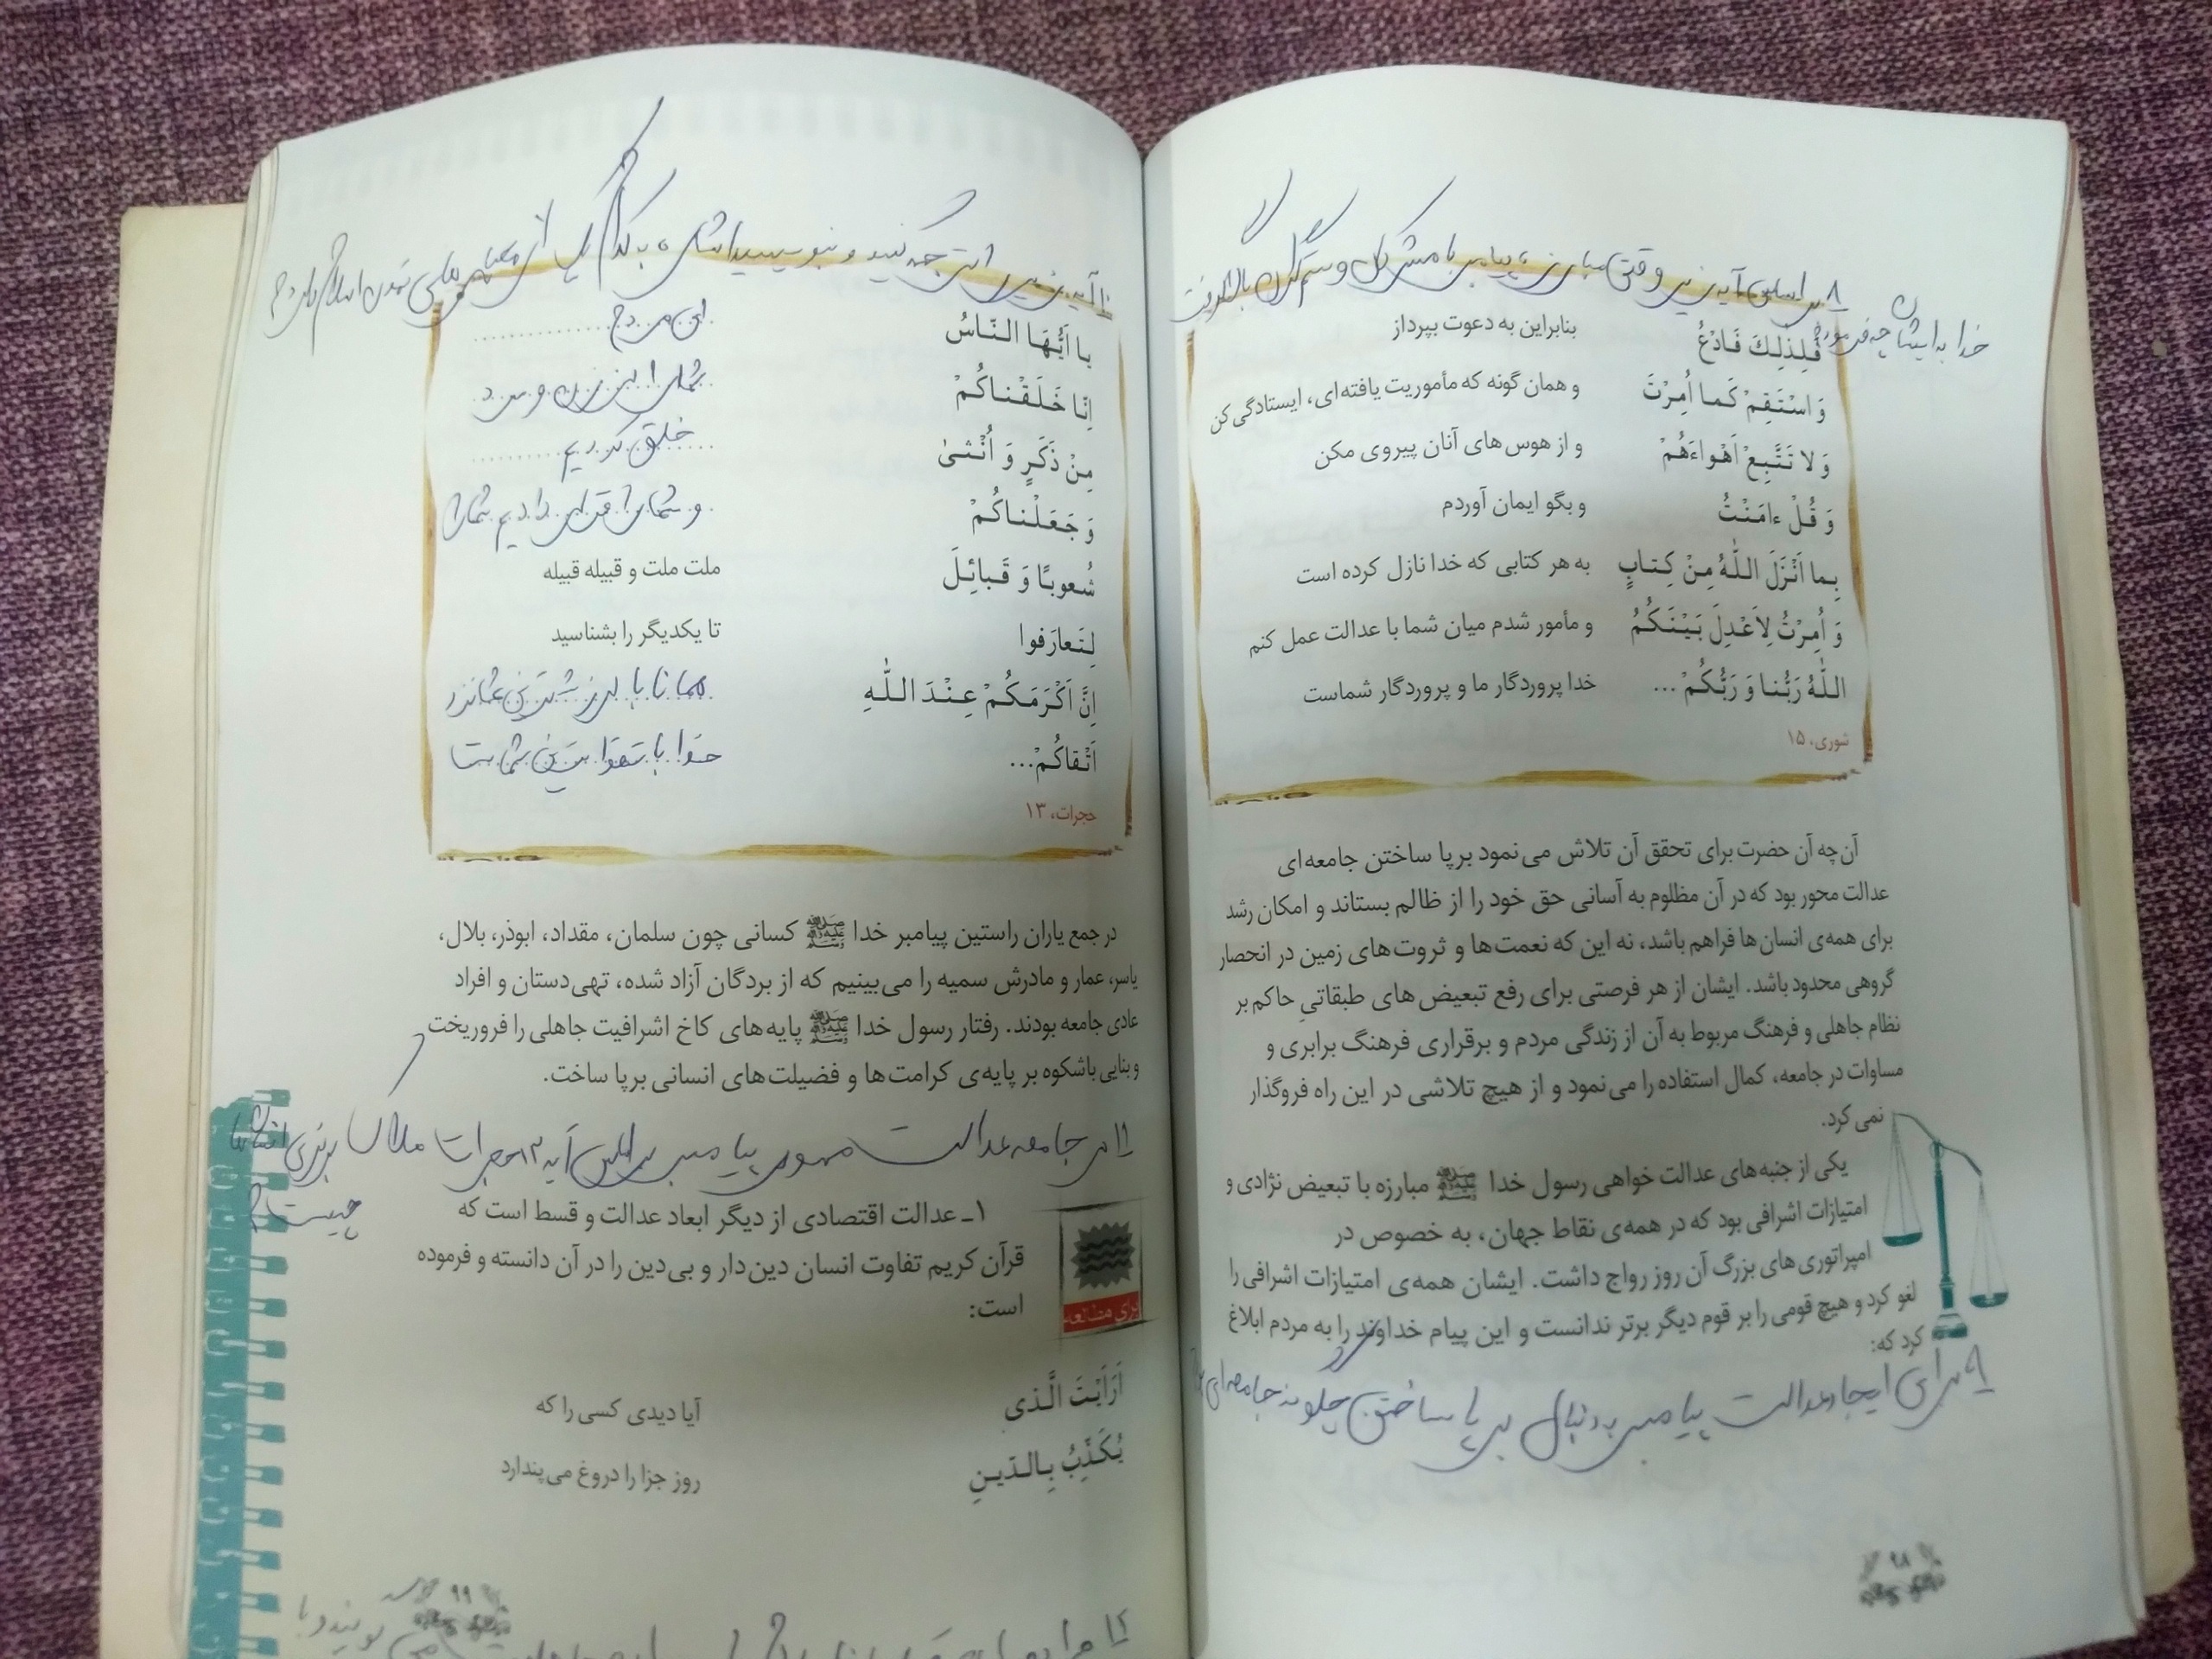 ۸ بر اساس آیه زیر وقتی مبارزه پیامبر با مشرکان و ستمگران بالا گرفت
خدا به ایشان چه فرمود
فَلِذلِكَ فَادْعُ بنابراین به دعوت بپرداز
وَ اسْتَقِمْ كَما اُمِرْتَ و همان گونه که مأموریت یافته‌ای، ایستادگی کن
وَ لا تَتَّبِعْ اَهْواءَهُمْ و از هوس‌های آنان پیروی مکن
وَ قُلْ ءامَنْتُ و بگو ایمان آوردم
بِما اَنْزَلَ اللّٰهُ مِنْ كِتابٍ به هر کتابی که خدا نازل کرده است
وَ اُمِرْتُ لِاَعْدِلَ بَيْنَكُمُ و مأمور شدم میان شما با عدالت عمل کنم
اللّٰهُ رَبُّنا وَ رَبُّكُمْ ... خدا پروردگار ما و پروردگار شماست
شوری، ۱۵
آن‌چه آن حضرت برای تحقق آن تلاش می‌نمود برپا ساختن جامعه‌ای
عدالت محور بود که در آن مظلوم به آسانی حق خود را از ظالم بستاند و امکان رشد
برای همه‌ی انسان‌ها فراهم باشد، نه این که نعمت‌ها و ثروت‌های زمین در انحصار
گروهی محدود باشد. ایشان از هر فرصتی برای رفع تبعیض‌های طبقاتیِ حاکم بر
نظام جاهلی و فرهنگ مربوط به آن از زندگی مردم و برقراری فرهنگ برابری و
مساوات در جامعه، کمال استفاده را می‌نمود و از هیچ تلاشی در این راه فروگذار
نمی‌کرد.
یکی از جنبه‌های عدالت خواهی رسول خدا ﷺ مبارزه با تبعیض نژادی و
امتیازات اشرافی بود که در همه‌ی نقاط جهان، به خصوص در
امپراتوری‌های بزرگ آن روز رواج داشت. ایشان همه‌ی امتیازات اشرافی را
لغو کرد و هیچ قومی را بر قوم دیگر برتر ندانست و این پیام خداوند را به مردم ابلاغ
کرد که:
۹ برای ایجاد عدالت پیامبر به دنبال برپا ساختن چگونه جامعه‌ای
۹۸
۱۰ آیه زیر را ترجمه کنید و بنویسید به کدام یک از معیارهای تمدن اسلامی
يا اَيُّهَا النّاسُ ای مردم
اِنّا خَلَقْناكُمْ شما را از زن و مرد
مِنْ ذَكَرٍ وَ اُنْثىٰ خلق کردیم
وَ جَعَلْناكُمْ و شما را قرار دادیم
شُعوبًا وَ قَبائِلَ ملت ملت و قبیله قبیله
لِتَعارَفوا تا یکدیگر را بشناسید
اِنَّ اَكْرَمَكُمْ عِنْدَ اللّٰهِ همانا با ارزش‌ترین شما نزد
اَتْقاكُمْ... خدا با تقوا ترین شماست
حجرات، ۱۳
در جمع یاران راستین پیامبر خدا ﷺ کسانی چون سلمان، مقداد، ابوذر، بلال،
یاسر، عمار و مادرش سمیه را می‌بینیم که از بردگان آزاد شده، تهی‌دستان و افراد
عادی جامعه بودند. رفتار رسول خدا ﷺ پایه‌های کاخ اشرافیت جاهلی را فروریخت
و بنایی باشکوه بر پایه‌ی کرامت‌ها و فضیلت‌های انسانی برپا ساخت.
۱۱ در جامعه عدالت محور پیامبر بر اساس آیه ۱۳ حجرات ملاک برتری انسان‌ها
چیست؟
برای مطالعه
۱ـ عدالت اقتصادی از دیگر ابعاد عدالت و قسط است که
قرآن کریم تفاوت انسان دین‌دار و بی‌دین را در آن دانسته و فرموده
است:
اَرَاَيْتَ الَّذى آیا دیدی کسی را که
يُكَذِّبُ بِالدّينِ روز جزا را دروغ می‌پندارد
۹۹